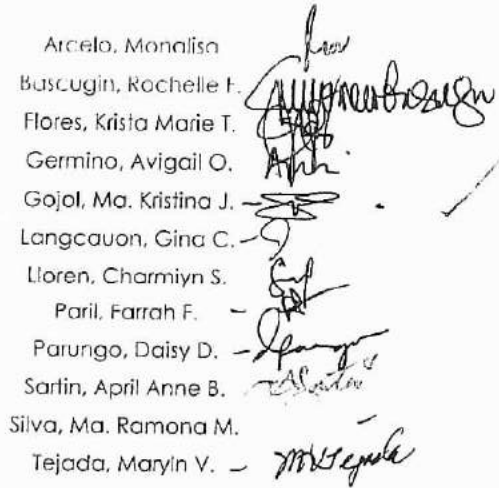 Arcelo, Monalisa
Buscugin, Rochelle F.
Flores, Krista Marie T.
Germino, Avigail O.
Gojol, Ma. Kristina J. -
Langcauon, Gina C. -
Lloren, Charmiyn S.
Paril, Farrah F. -
Parungo, Daisy D. -
Sartin, April Anne B.
Silva, Ma. Ramona M. -
Tejada, Maryin V. - MVTejada